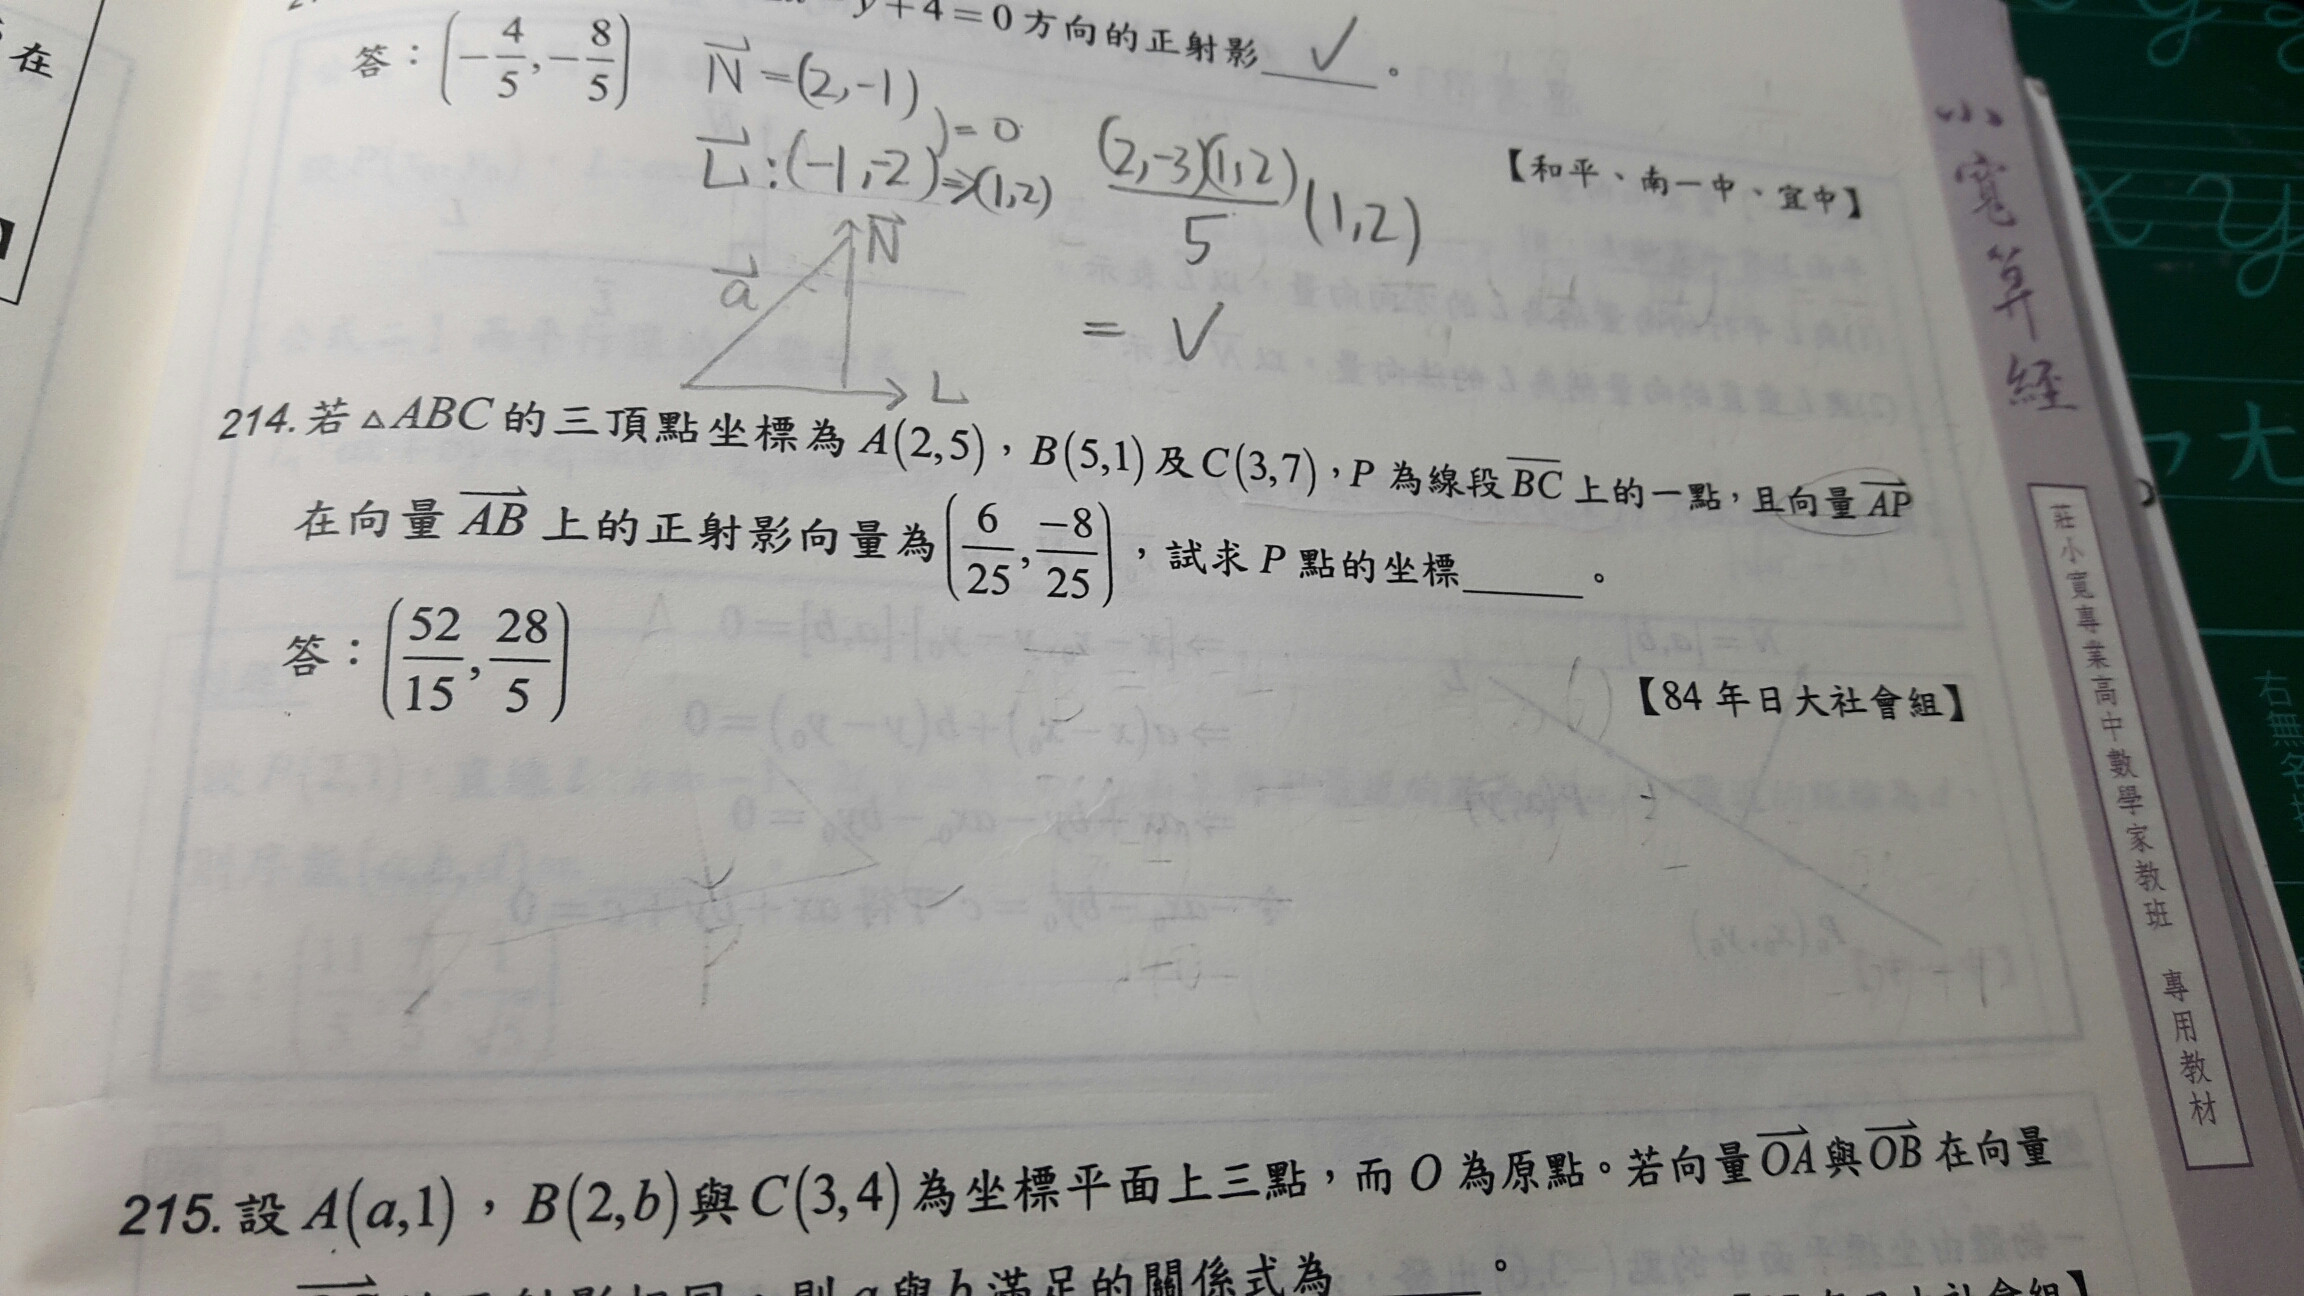 在
y+4=0方向的正射影 ✓ 。
答：(-4/5,-8/5)
N=(2,-1)
)=0
L:(-1,-2)⇒(1,2)
(2,-3)(1,2)/5 (1,2)
= ✓
【和平、南一中、宜中】
N
a
L
214.若△ABC的三頂點坐標為A(2,5)，B(5,1)及C(3,7)，P為線段BC上的一點，且向量AP
在向量AB上的正射影向量為(6/25,-8/25)，試求P點的坐標______。
答：(52/15,28/5)
【84年日大社會組】
215.設A(a,1)，B(2,b)與C(3,4)為坐標平面上三點，而O為原點。若向量OA與OB在向量
則a與b滿足的關係式為______。
年日大社會組】
小寬算經
莊小寬專業高中數學家教班 專用教材
x y